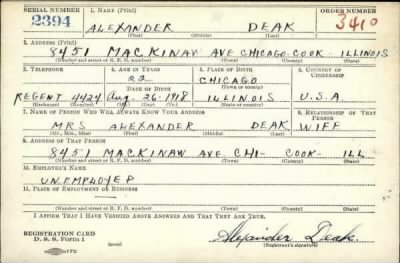 SERIAL NUMBER 1. NAME (Print) ORDER NUMBER
2394 ALEXANDER DEAK 3410
(First) (Middle) (Last)
2. ADDRESS (Print)
8451 MACKINAW AVE CHICAGO-COOK-ILLINOIS
(Number and street or R. F. D. number) (Town) (County) (State)
3. TELEPHONE 4. AGE IN YEARS 5. PLACE OF BIRTH 6. COUNTRY OF CITIZENSHIP
22 CHICAGO
DATE OF BIRTH (Town or county)
REGENT 4424 Aug. 26-1918 ILLINOIS U.S.A.
(Exchange) (Number) (Mo.) (Day) (Yr.) (State or country)
7. NAME OF PERSON WHO WILL ALWAYS KNOW YOUR ADDRESS 8. RELATIONSHIP OF THAT PERSON
MRS ALEXANDER DEAK WIFE
(Mr., Mrs., Miss) (First) (Middle) (Last)
9. ADDRESS OF THAT PERSON
8451 MACKINAW AVE. CHI- COOK- ILL
(Number and street or R. F. D. number) (Town) (County) (State)
10. EMPLOYER'S NAME
UNEMPLOYED
11. PLACE OF EMPLOYMENT OR BUSINESS
(Number and street or R. F. D. number) (Town) (County) (State)
I AFFIRM THAT I HAVE VERIFIED ABOVE ANSWERS AND THAT THEY ARE TRUE.
REGISTRATION CARD
D. S. S. Form 1 Alexander Deak
(Registrant's signature)